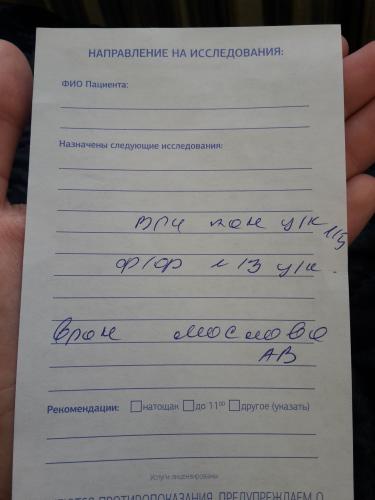 НАПРАВЛЕНИЕ НА ИССЛЕДОВАНИЯ:
ФИО Пациента:
Назначены следующие исследования:
ВПЧ кон ц/к
ц/к
врач Маслова
АВ
Рекомендации: натощак до 11⁰⁰ другое (указать)
Услуги лицензированы
ПРОТИВОПОКАЗАНИЯ. ПРЕДУПРЕЖДАЕМ О